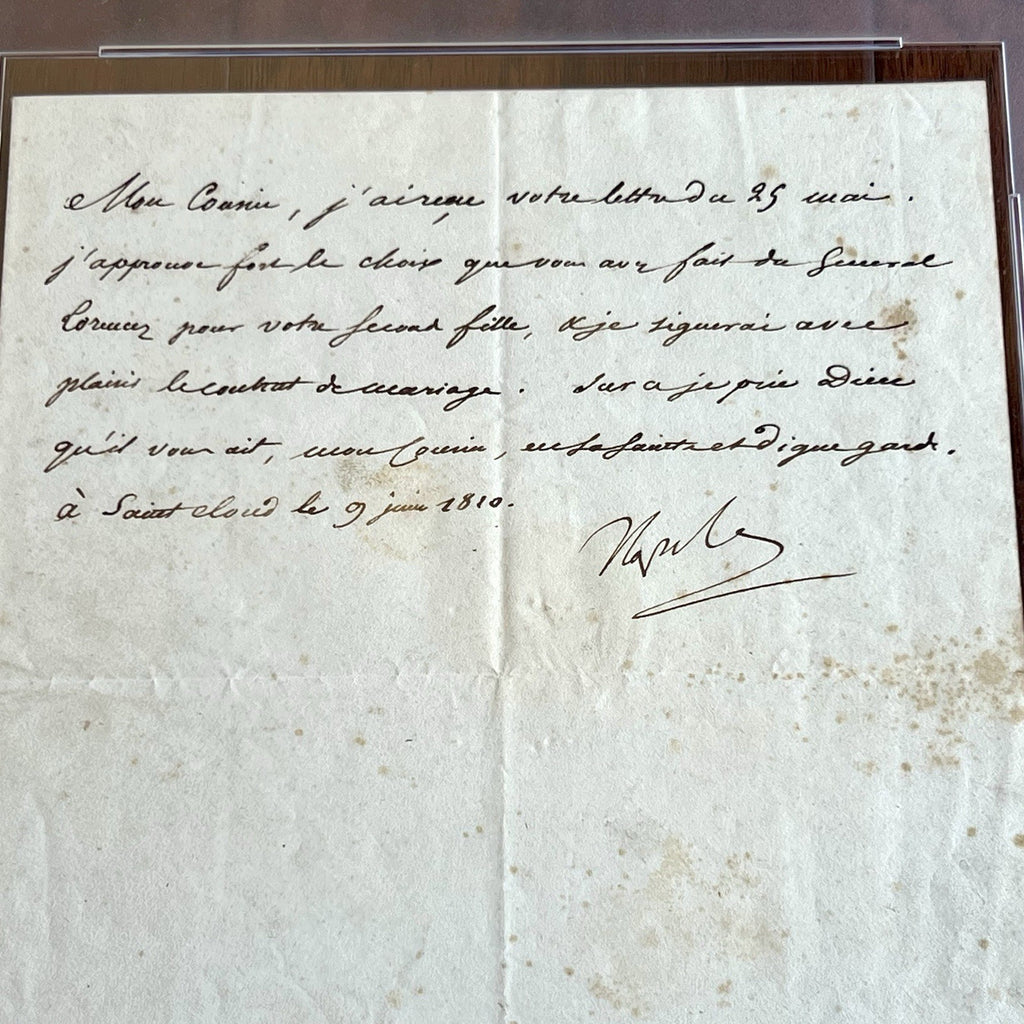 Mon Cousin, j'ai reçu votre lettre du 25 mai.
j'approuve fort le choix que vous avez fait du General
Lorencez pour votre second fille, & je signerai avec
plaisir le contrat de mariage. Sur ce je prie Dieu
qu'il vous ait, mon Cousin, en sa sainte et digne garde.
à Saint cloud le 9 juin 1810.
Napole